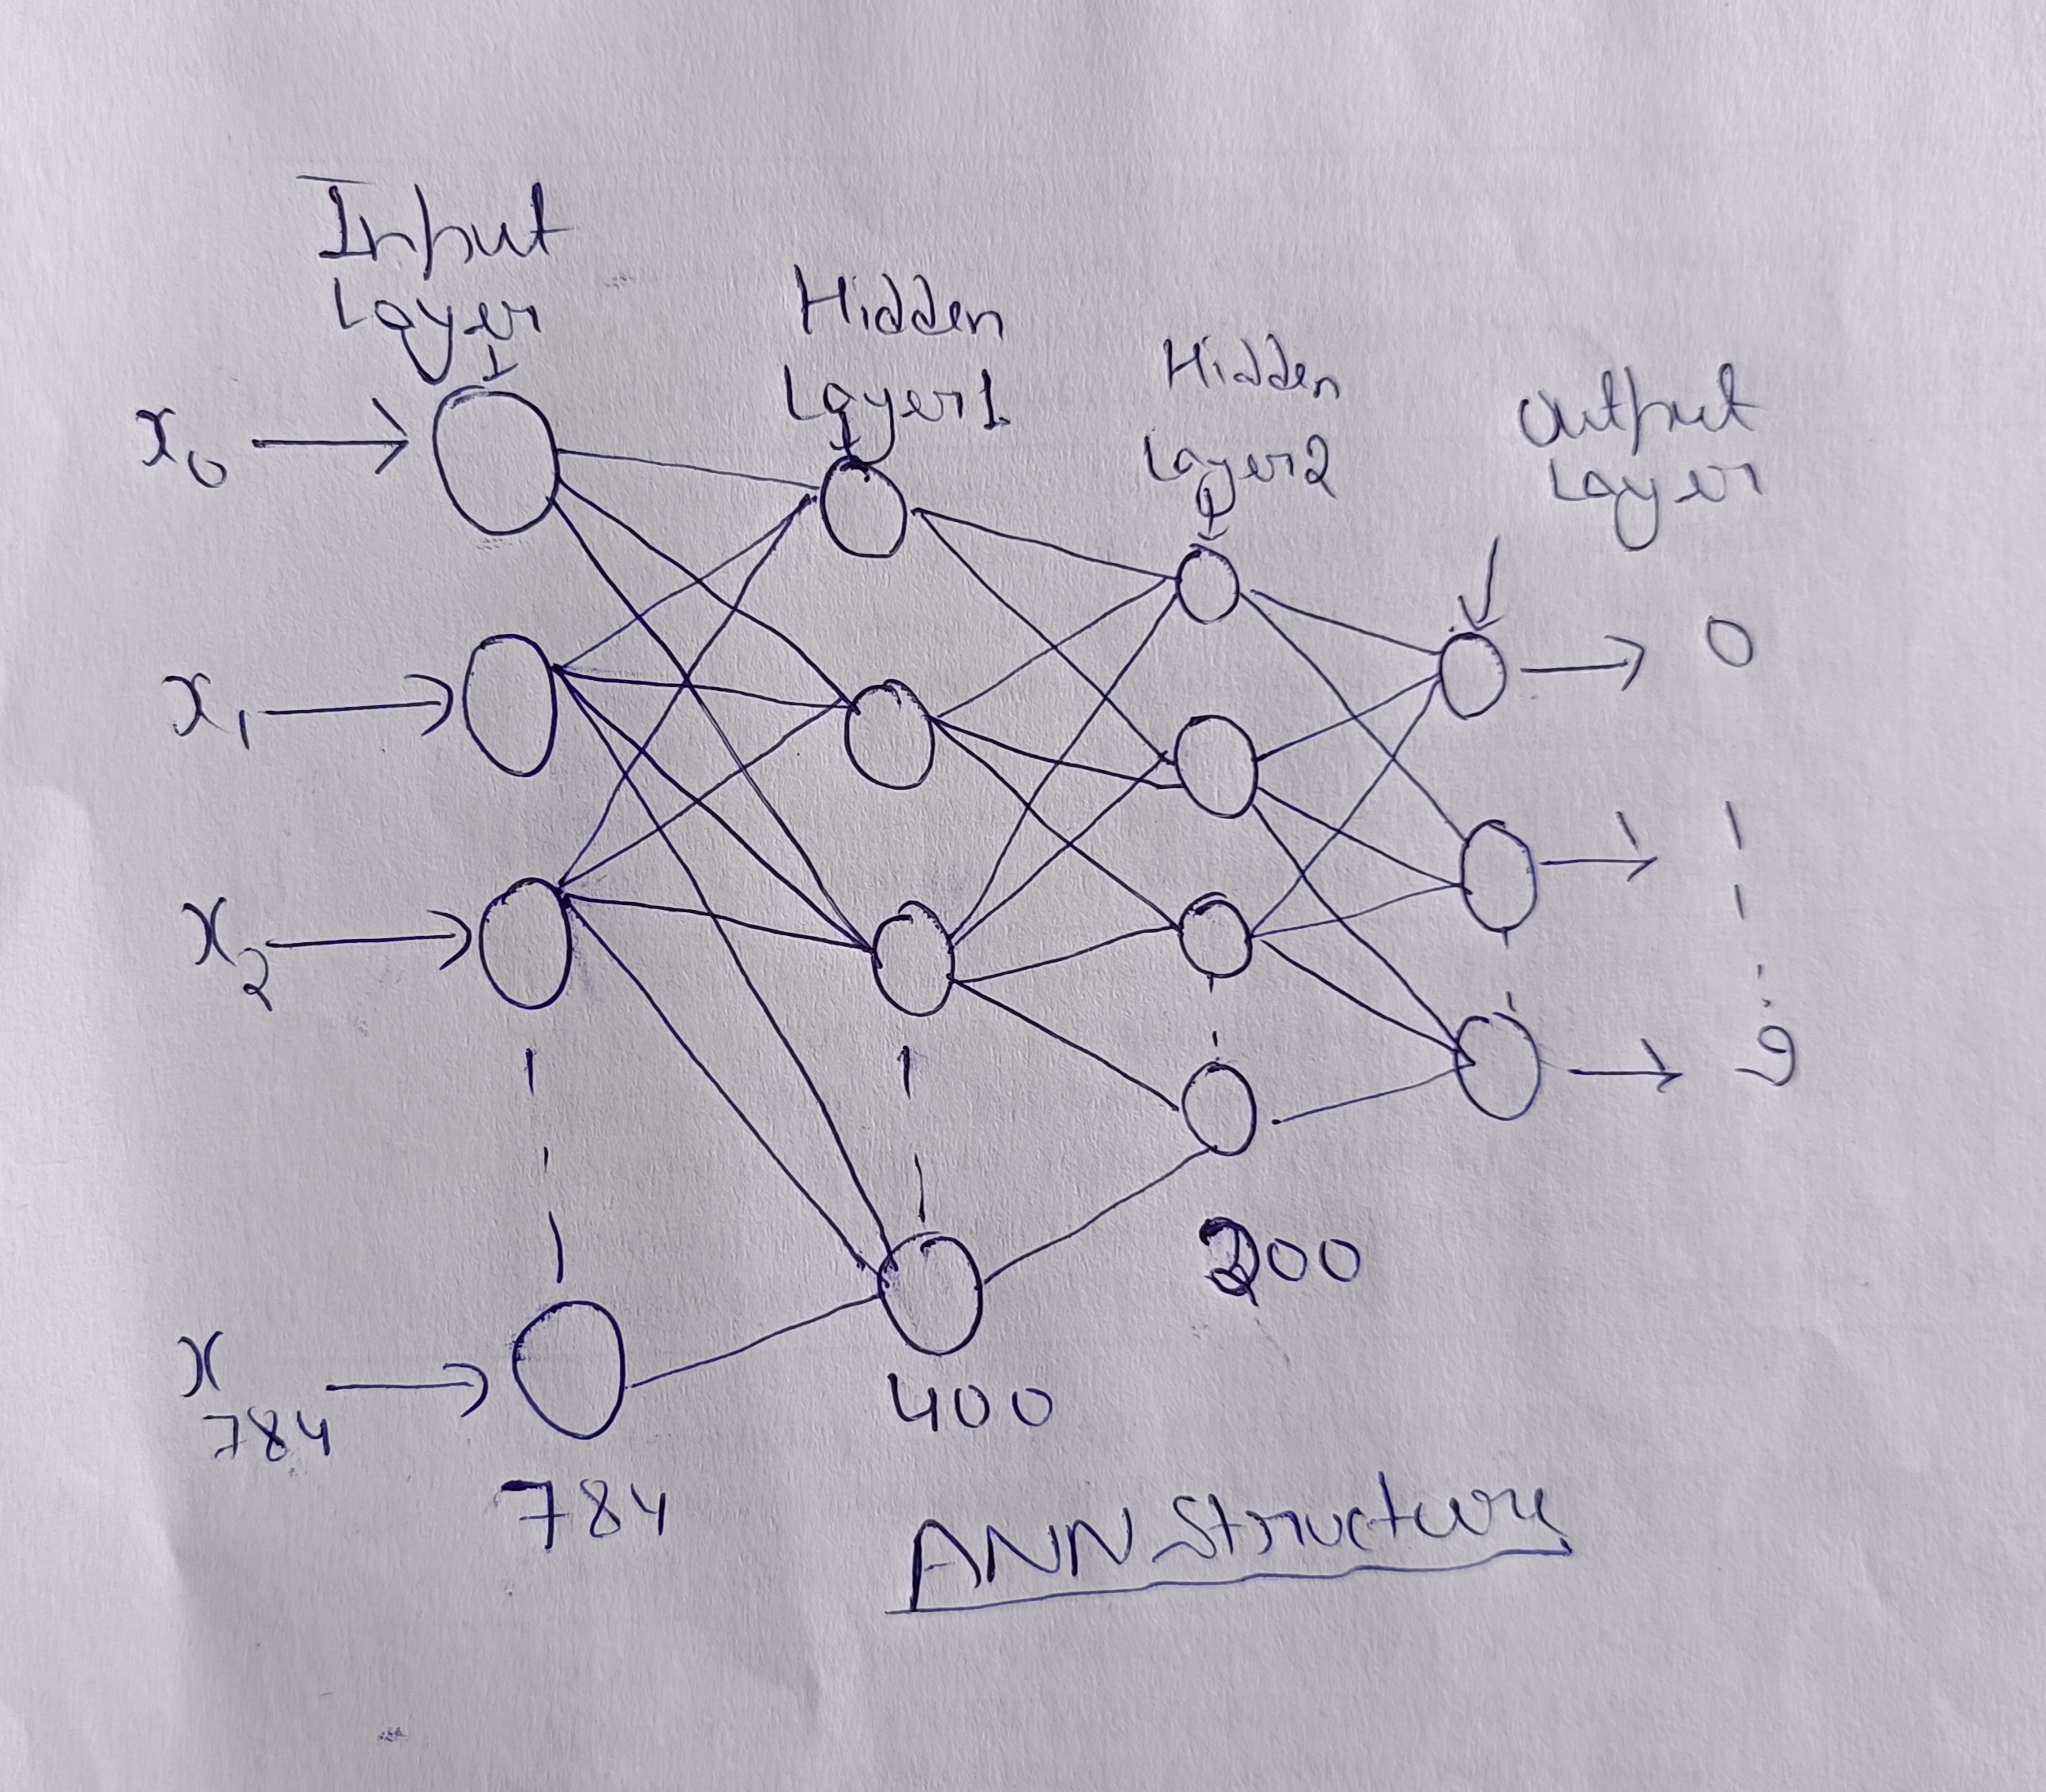 Input
Layer
Hidden
Layer 1
Hidden
Layer 2
Output
Layer
x₀
0
x₁
1
x₂
9
x₇₈₄
784
400
200
ANN Structure